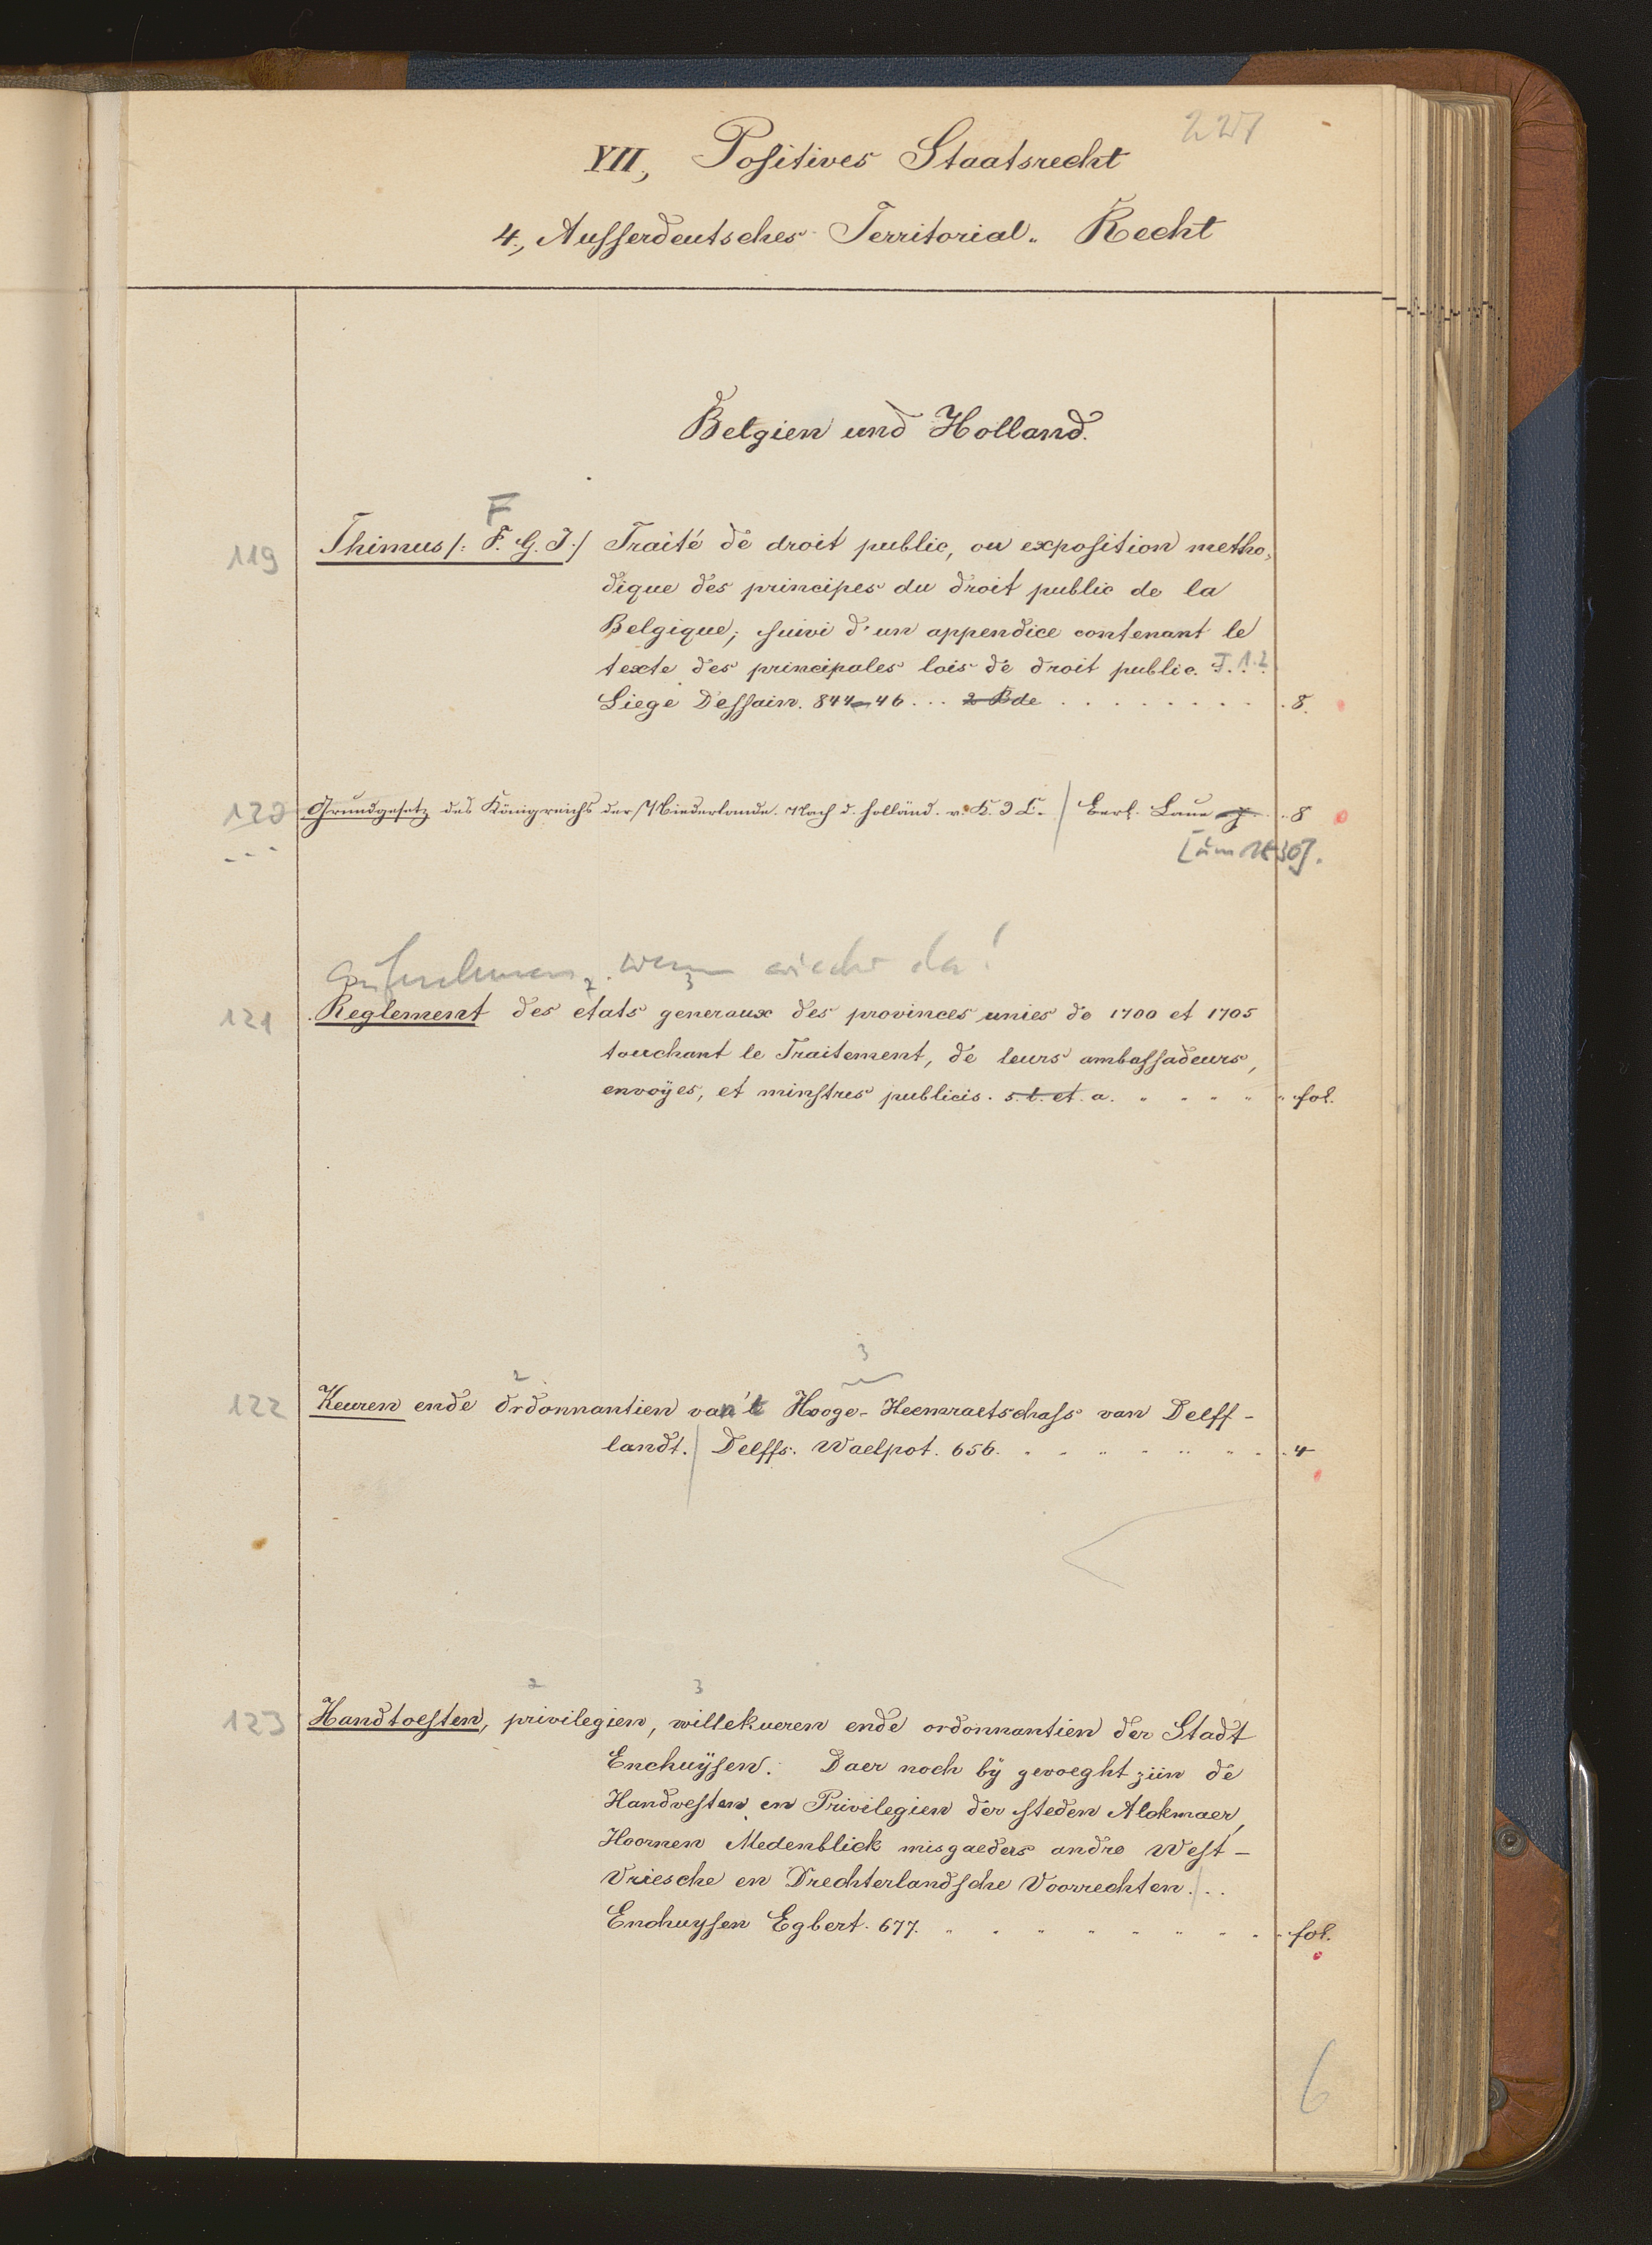 227
VII., Positives Staatsrecht
4., Ausserdeutsches Territorial-Recht
Belgien und Holland.
F
119 Thimus /: F. G. J. / Traité de droit public, ou exposition metho-
dique des principes du droit public de la
Belgique; suivi d'un appendice contenant le
texte des principales lois de droit public. T. 1.2.
Liege Dessain. 844-46... 2 Bde . . . 8.
120 Grundgesetz des Königreichs der Niederlande. Nach d. holländ. v. Berl. Laue 8
[um 1830].
Aufnehmen, wenn wieder da!
2 3
121 Reglement des etats generaux des provinces unies de 1700 et 1705
touchant le Traitement, de leurs ambassadeurs,
envoÿes, et minstres publicis. s. l. et. a. fol.
2 3
122 Keuren ende Ordonnantien van't Hooge-Heemraetschass van Delff-
landt. Delffs. Waelpot. 656. 4
2 3
123 Handtoesten, privilegien, willekueren ende ordonnantien der Stadt
Enchuÿsen. Daer noch bÿ gevoeght ziin de
Handvesten en Privilegien der steden Alckmaer,
Hoornen Medenblick misgaeders andre West-
Vriesche en Drechterlandsche Voorrechten...
Enchuysen Egbert. 677. fol.
6